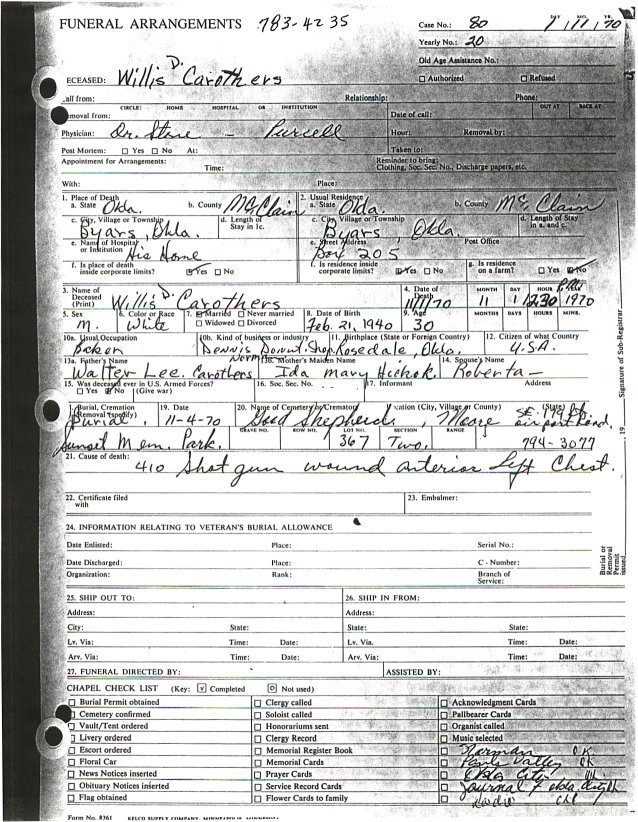 FUNERAL ARRANGEMENTS 783-4235
Case No.: 80 11/1/70
Yearly No.: 20
Old Age Assistance No.:
ECEASED: Willis D. Carothers ☐ Authorized ☐ Refused
all from: Relationship: Phone:
CIRCLE: HOME HOSPITAL OR INSTITUTION OUT AT BACK AT
emoval from: Date of call:
Physician: Dr. Stone - Purcell Hour: Removal by:
Post Mortem: ☐ Yes ☐ No At: Taken to:
Appointment for Arrangements: Time: Reminder to bring: Clothing, Soc. Sec. No., Discharge papers, etc.
With: Place:
1. Place of Death 2. Usual Residence
a. State Okla. b. County McClain a. State Okla b. County McClain
c. City, Village or Township d. Length of Stay in 1c. c. City, Village or Township d. Length of Stay in a. and c.
Byars, Okla. Byars, Okla.
e. Name of Hospital or Institution His Home e. Street Address Box 205 Post Office
f. Is place of death inside corporate limits? ☑ Yes ☐ No f. Is residence inside corporate limits? ☑ Yes ☐ No g. Is residence on a farm? ☐ Yes ☑ No
3. Name of Deceased (Print) Willis D. Carothers 4. Date of Death 11/1/70 MONTH 11 DAY 1 HOUR 12:30 P.M. 1970
5. Sex 6. Color or Race 7. ☑ Married ☐ Never married 8. Date of Birth 9. Age MONTHS DAYS HOURS MINS.
M. White ☐ Widowed ☐ Divorced Feb. 21, 1940 30
10a. Usual Occupation 10b. Kind of business or industry 11. Birthplace (State or Foreign Country) 12. Citizen of what Country
Baker Dennis Donut Shop Rosedale, Okla. U.S.A.
13a. Father's Name Norm 13b. Mother's Maiden Name 14. Spouse's Name
Walter Lee. Carothers Ida Mary Hickok. Roberta -
15. Was deceased ever in U.S. Armed Forces? 16. Soc. Sec. No. 17. Informant Address
☐ Yes ☑ No (Give war)
Burial, Cremation Removal (specify) 19. Date 20. Name of Cemetery or Crematory cation (City, Village or County)
Burial. 11-4-70 Good Shepherd, Moore
GRAVE NO. ROW NO. LOT NO. SECTION RANGE
Sunset Mem. Park. 367 Two. 794-3077
21. Cause of death: 410 Shotgun wound anterior Left Chest.
22. Certificate filed with 23. Embalmer:
24. INFORMATION RELATING TO VETERAN'S BURIAL ALLOWANCE
Date Enlisted: Place: Serial No.:
Date Discharged: Place: C - Number:
Organization: Rank: Branch of Service:
Signature of Sub-Registrar
19
Burial or Removal Permit issued
25. SHIP OUT TO: 26. SHIP IN FROM:
Address: Address:
City: State: State: State:
Lv. Via: Time: Date: Lv. Via. Time: Date:
Arv. Via: Time: Date: Arv. Via: Time: Date:
27. FUNERAL DIRECTED BY: ASSISTED BY:
CHAPEL CHECK LIST (Key: ☑ Completed ☐ Not used)
☐ Burial Permit obtained ☐ Clergy called ☐ Acknowledgment Cards
☐ Cemetery confirmed ☐ Soloist called ☐ Pallbearer Cards
☐ Vault/Tent ordered ☐ Honorariums sent ☐ Organist called
☐ Livery ordered ☐ Clergy Record ☐ Music selected
☐ Escort ordered ☐ Memorial Register Book Norman OK
☐ Floral Car ☐ Memorial Cards Pauls Valley OK
☐ News Notices inserted ☐ Prayer Cards Okla City
☐ Obituary Notices inserted ☐ Service Record Cards Journal
☐ Flag obtained ☐ Flower Cards to family
Form No. 8361 KELCO SUPPLY COMPANY, MINNEAPOLIS, MINNESOTA